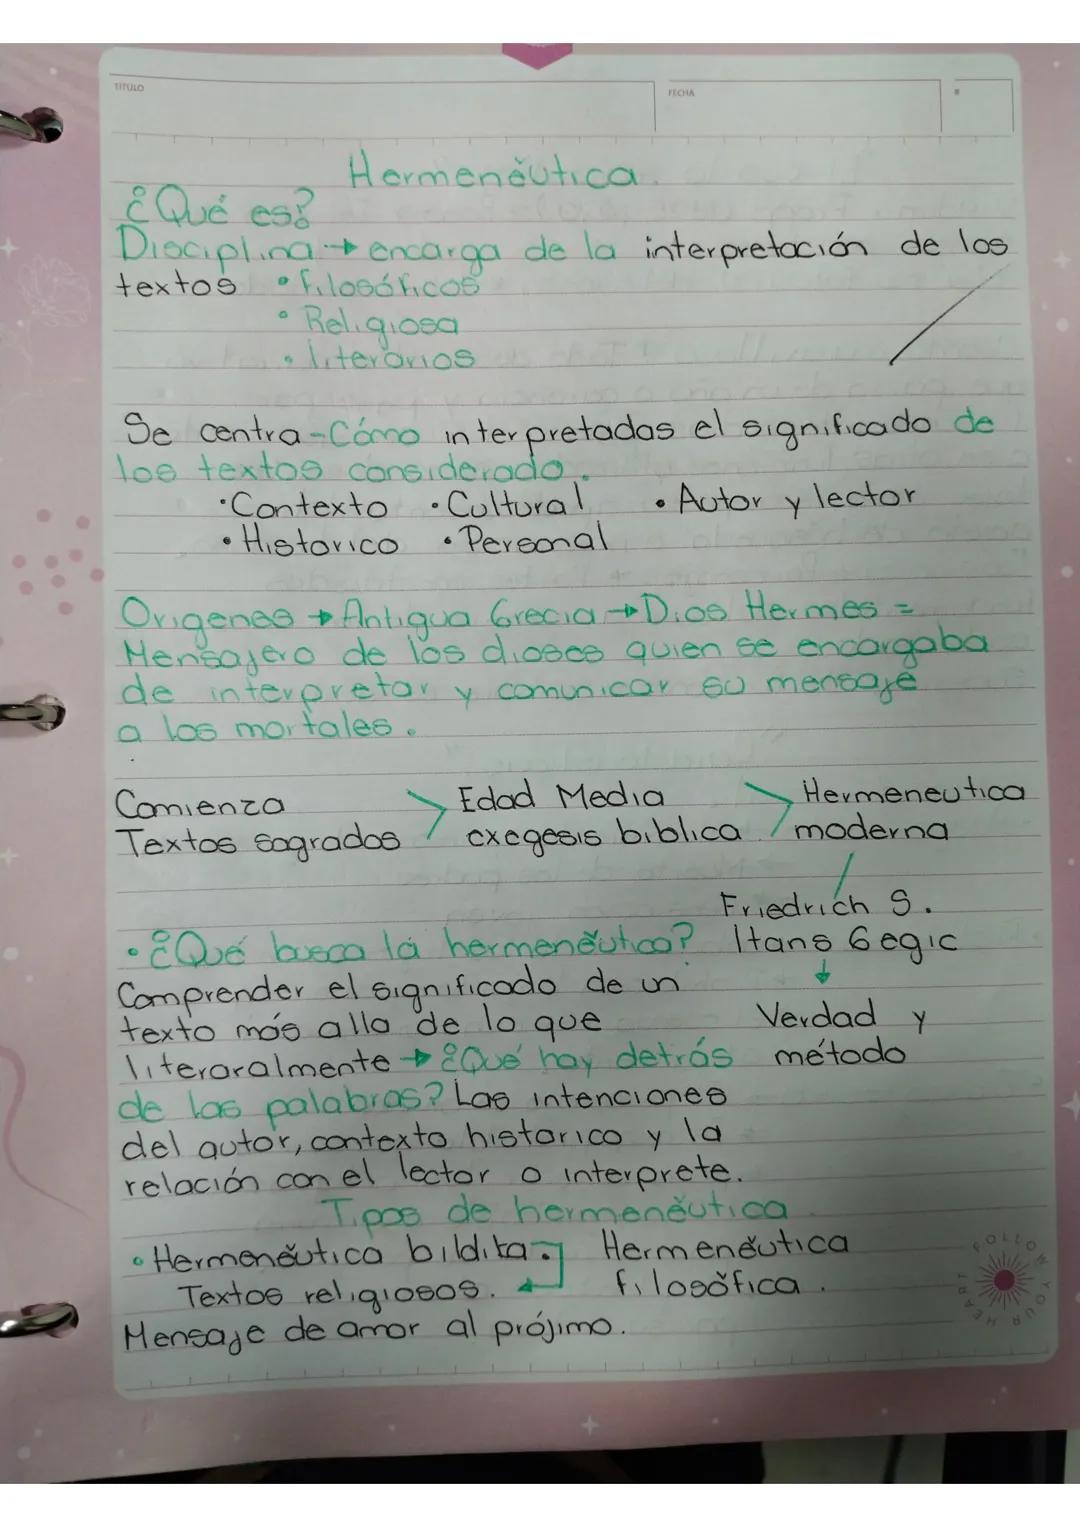 TITULO
FECHA
Hermenéutica.
¿Qué es?
Disciplina → encarga de la interpretación de los
textos • filosóficos
• Religiosa
• literarios
Se centra - Cómo interpretadas el significado de
los textos considerado.
• Contexto • Cultural • Autor y lector
• Historico • Personal
Origenes → Antigua Grecia → Dios Hermes =
Mensajero de los dioses quien se encargaba
de interpretar y comunicar su mensaje
a los mortales.
Comienza Edad Media Hermeneutica
Textos sagrados exegesis biblica moderna
Friedrich S.
• ¿Qué busca la hermenéutica? Hans Gegic
Comprender el significado de un
texto más alla de lo que Verdad y
literaralmente → ¿Qué hay detrás método
de las palabras? Las intenciones
del autor, contexto historico y la
relación con el lector o interprete.
Tipos de hermenéutica.
• Hermenéutica bildita. Hermenéutica
Textos religiosos. filosófica.
Mensaje de amor al prójimo.
FOLLOW YOUR HEART